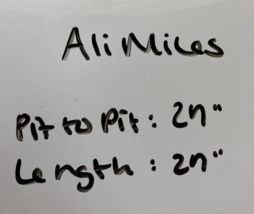 Ali Miles
Pit to Pit: 2n"
Length: 2n"